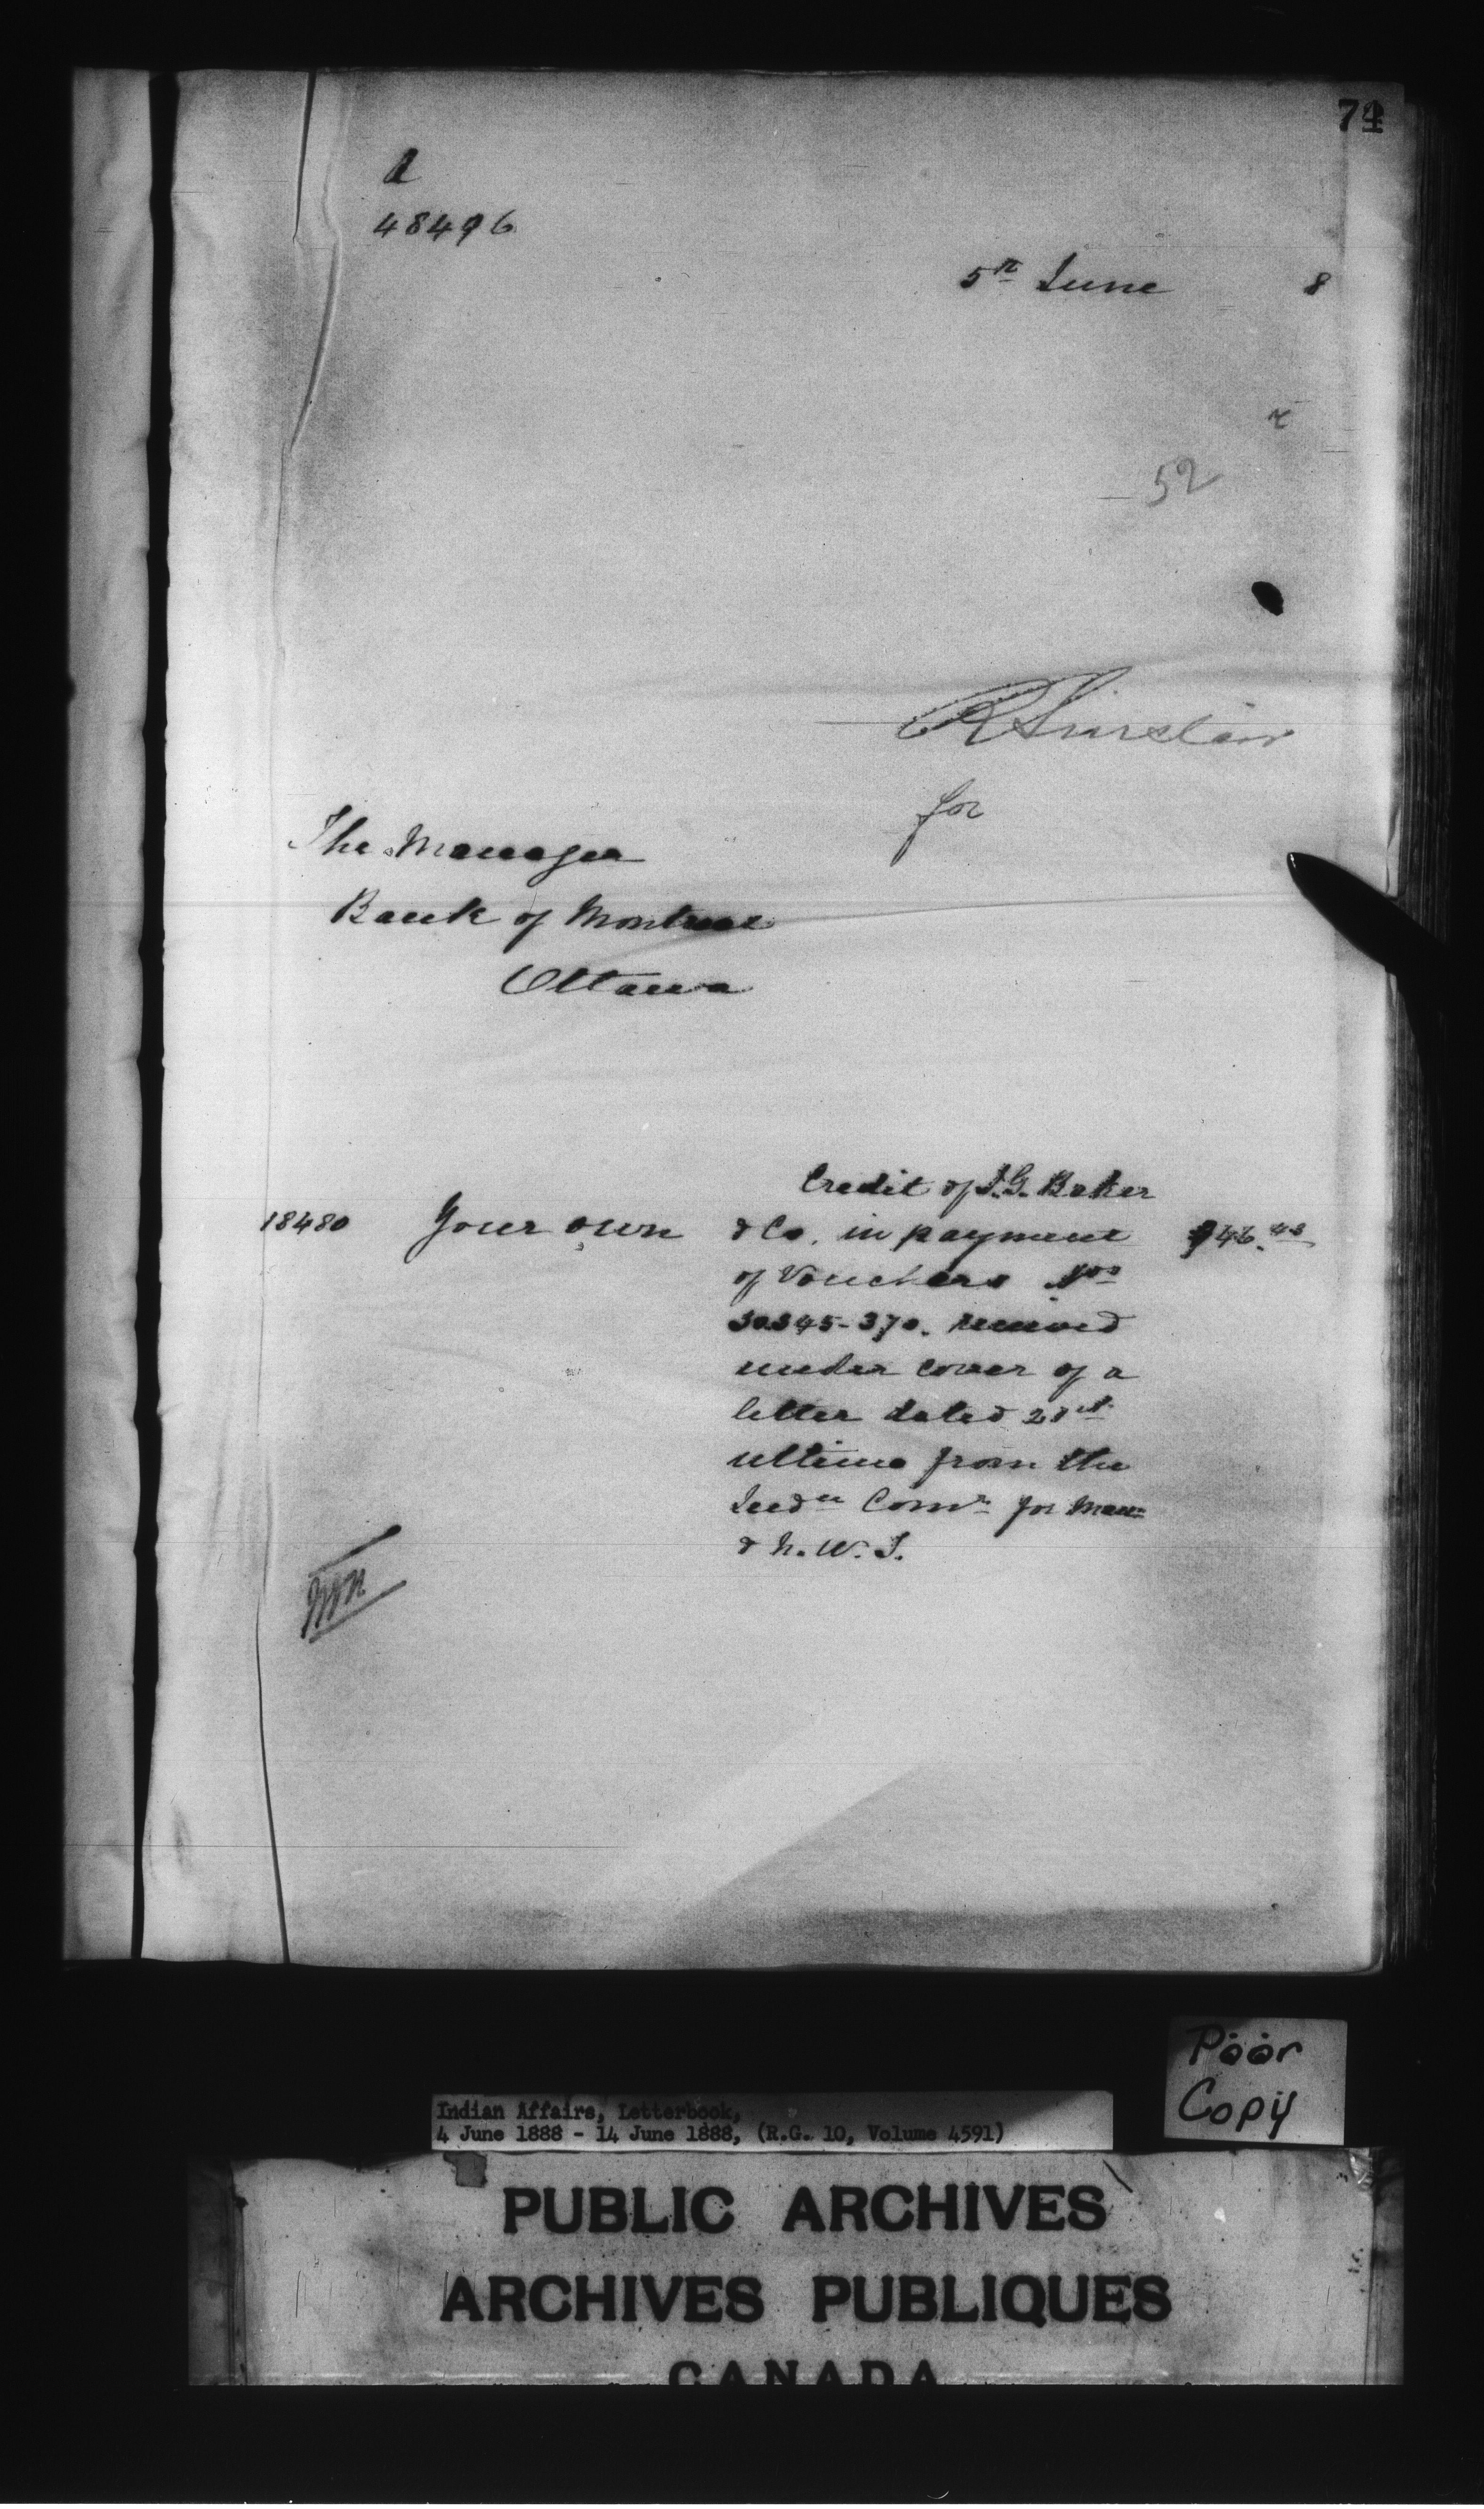 74
48496
5th June 8
52
R Sinclair
for
The Manager
Bank of Montreal
Ottawa
Credit of I.G. Baker
18480 Your own & Co. in payment 946.48
of Vouchers Nos
30345-370. received
under cover of a
letter dated 28th
ultimo from the
Indn Comr for Man:
& N. W. T.
Poor
Copy
Indian Affairs, Letterbook,
4 June 1888 - 14 June 1888, (R.G. 10, Volume 4591)
PUBLIC ARCHIVES
ARCHIVES PUBLIQUES
CANADA